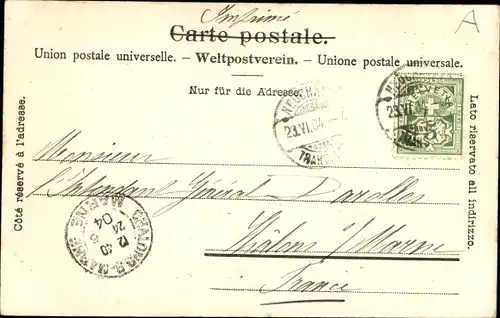 Imprimé
A
Carte postale.
Union postale universelle. – Weltpostverein. – Unione postale universale.
Nur für die Adresse.
Côté réservé à l'adresse.
Lato riservato all indirizzo.
23.VI.04
HELVETIA
Monsieur
l'Intendant Général
Châlons s/ Marne
France
CHALONS-S-MARNE
MARNE
24
04